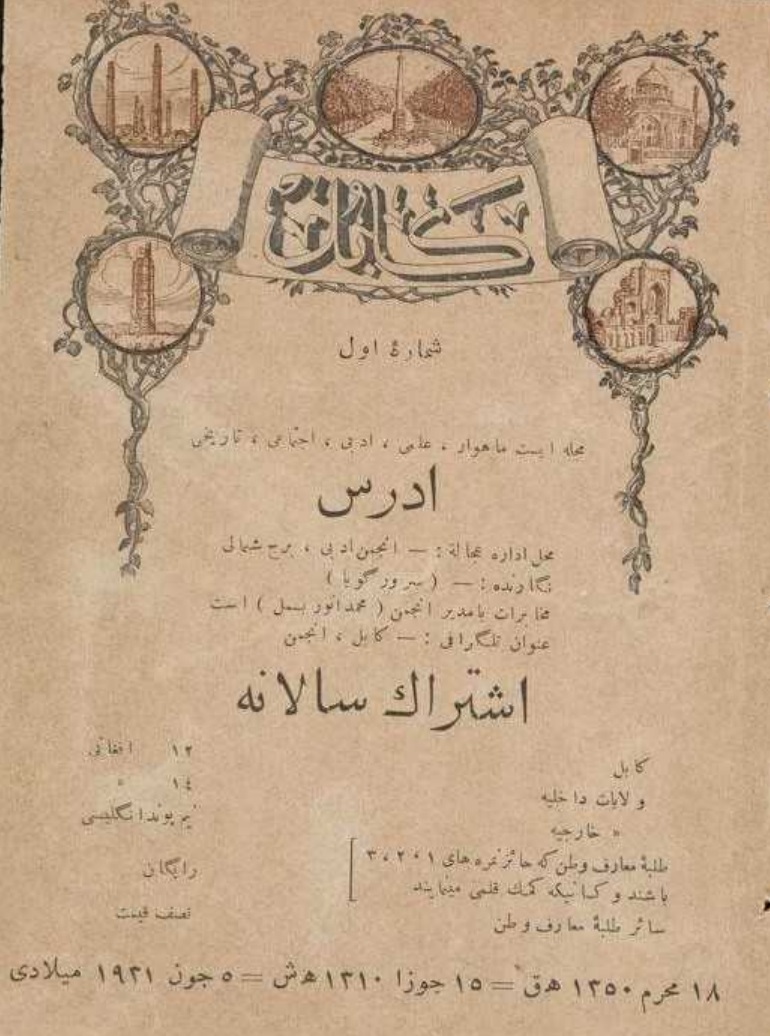 کابل
شمارهٔ اول
مجله ایست ماهوار ، علمی ، ادبی ، اجتماعی ، تاریخی
ادرس
محل اداره عجالة : — انجمن ادبی ، برج شمالی
نگارنده : — ( سرور گویا )
مخابرات بامدیر انجمن ( محمد انور بسمل ) است
عنوان تلگرافی : — کابل ، انجمن
اشتراك سالانه
کابل ۱۲ افغانی
ولایات داخلیه ۱٤ »
» خارجیه نیم پوند انگلیسی
طلبهٔ معارف وطن که حائز نمره های ۱ ، ۲ ، ۳
باشند و کسانیکه کمك قلمی مینمایند رایگان
سائر طلبهٔ معارف وطن نصف قیمت
۱۸ محرم ۱۳۵۰ ه‍ ق = ۱۵ جوزا ۱۳۱۰ ه‍ ش = ۵ جون ۱۹۳۱ میلادی